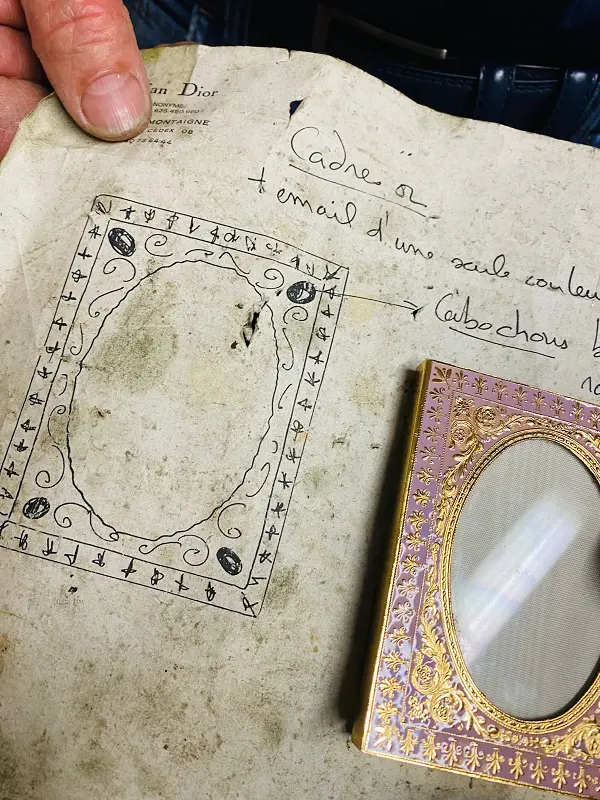 an Dior
NONYME
635.480.660
MONTAIGNE
CEDEX 08
73 54-44
Cadre or
+ email d'une seule couleu
Cabochons b